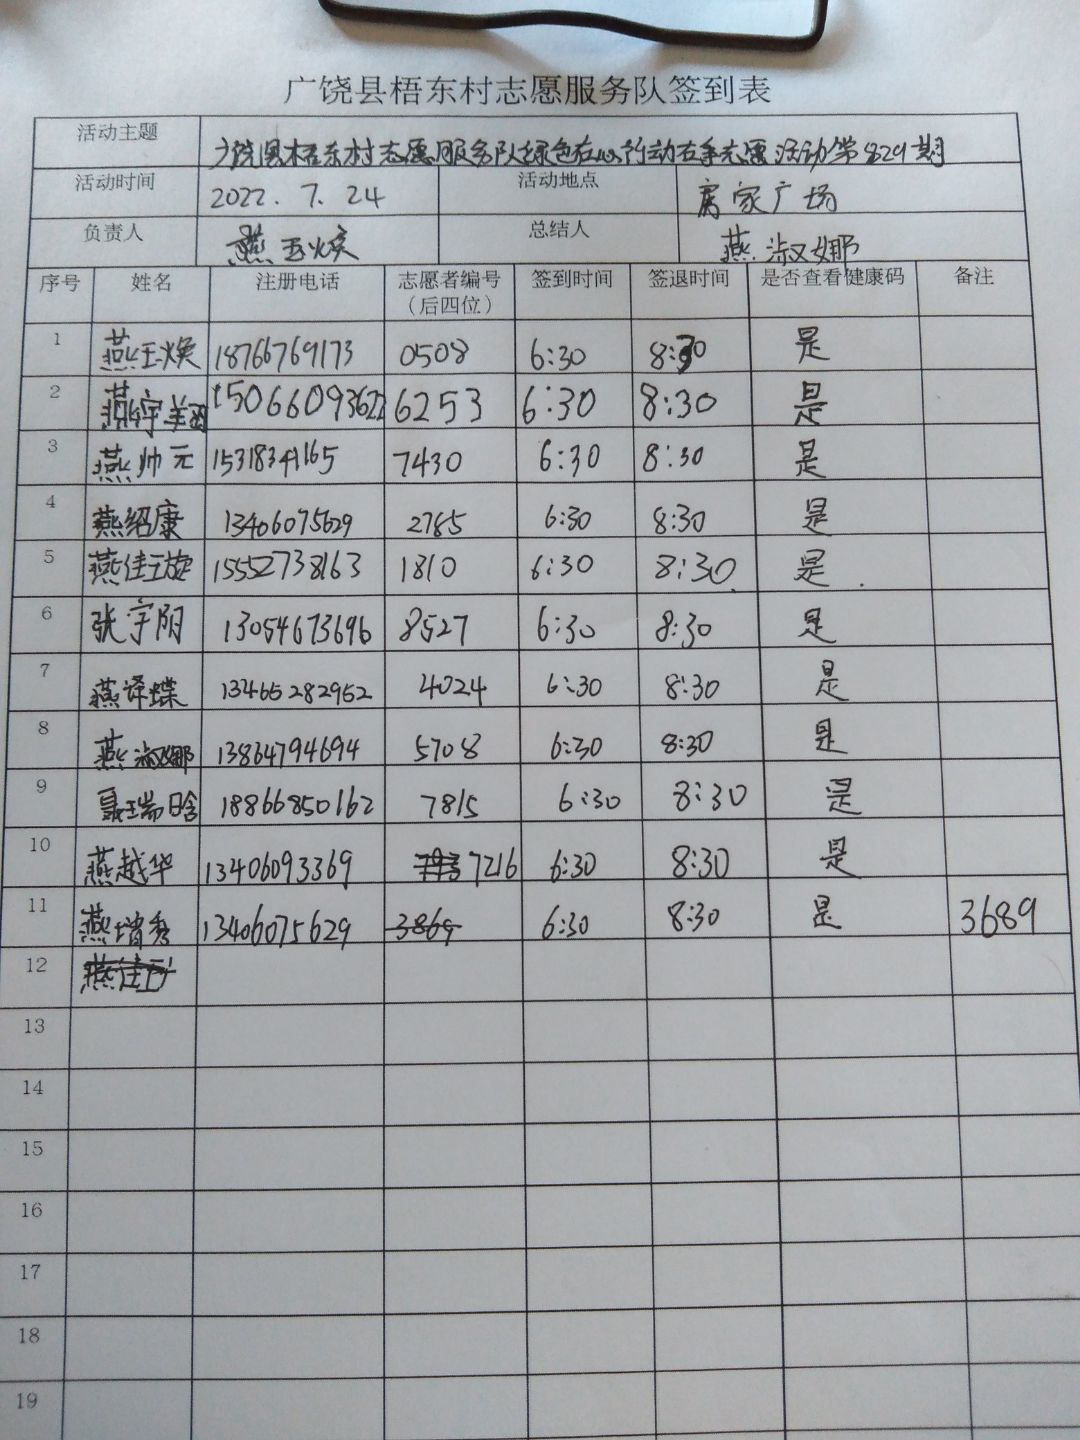 广饶县梧东村志愿服务队签到表
活动主题 广饶县梧东村志愿服务队绿色在心行动在手志愿活动第829期
活动时间 2022.7.24 活动地点 家广场
负责人 燕玉焕 总结人 燕淑娜
序号 姓名 注册电话 志愿者编号（后四位） 签到时间 签退时间 是否查看健康码 备注
1 燕玉焕 18766769173 0508 6:30 8:30 是
2 燕宇 15066093622 6253 6:30 8:30 是
3 燕帅元 15318341165 7430 6:30 8:30 是
4 燕绍康 13406075629 2785 6:30 8:30 是
5 燕佳璇 15552738163 1810 6:30 8:30 是
6 张宇阳 13054673696 8527 6:30 8:30 是
7 燕译蝶 13465282952 4024 6:30 8:30 是
8 燕淑娜 13864794694 5708 6:30 8:30 是
9 聂瑞晗 18866850162 7815 6:30 8:30 是
10 燕越华 13406093369 7216 6:30 8:30 是
11 燕增秀 13406075629 3869 6:30 8:30 是 3689
12 燕佳
13
14
15
16
17
18
19